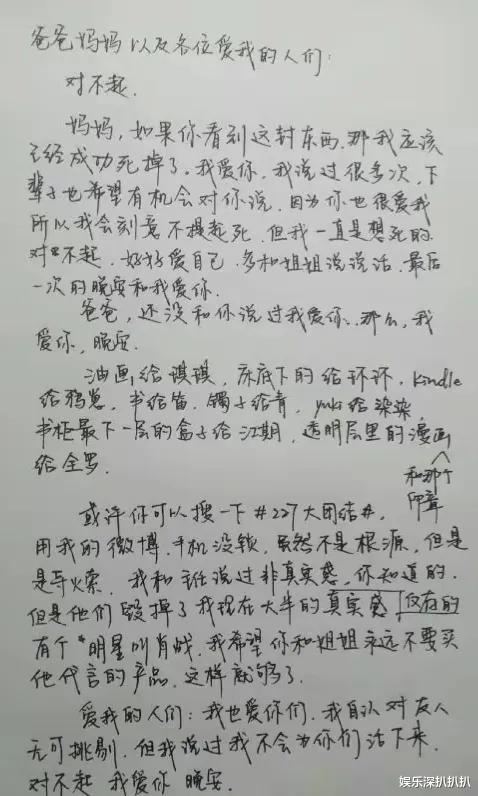 爸爸妈妈以及各位爱我的人们:
对不起.
妈妈,如果你看到这封东西.那我应该
已经成功死掉了.我爱你.我说过很多次,下
辈子也希望有机会对你说.因为你也很爱我
所以我会刻意不提起死.但我一直是想死的.
对不起.好好爱自己.多和姐姐说说话.最后
一次的晚安和我爱你.
爸爸,还没和你说过我爱你.那么,我
爱你,晚安.
油画给琪琪,床底下的给环环.kindle
给鸦崽,书给笛.镯子给青,yuki给染染,
书柜最下一层的盒子给江期,透明层里的漫画
和那个
印章
给全罗.
或许你可以搜一下#227大团结#,
用我的微博,手机没锁,虽然不是根源,但是
是导火索.我和主任说过非真实感,你知道的.
但是他们毁掉了我现在大半的真实感,仅有的
有个*明星叫肖战.我希望你和姐姐永远不要买
他代言的产品,这样就够了.
爱我的人们:我也爱你们.我自认对友人
无可挑剔.但我说过我不会为你们活下来.
对不起 我爱你 晚安.
娱乐深扒扒扒